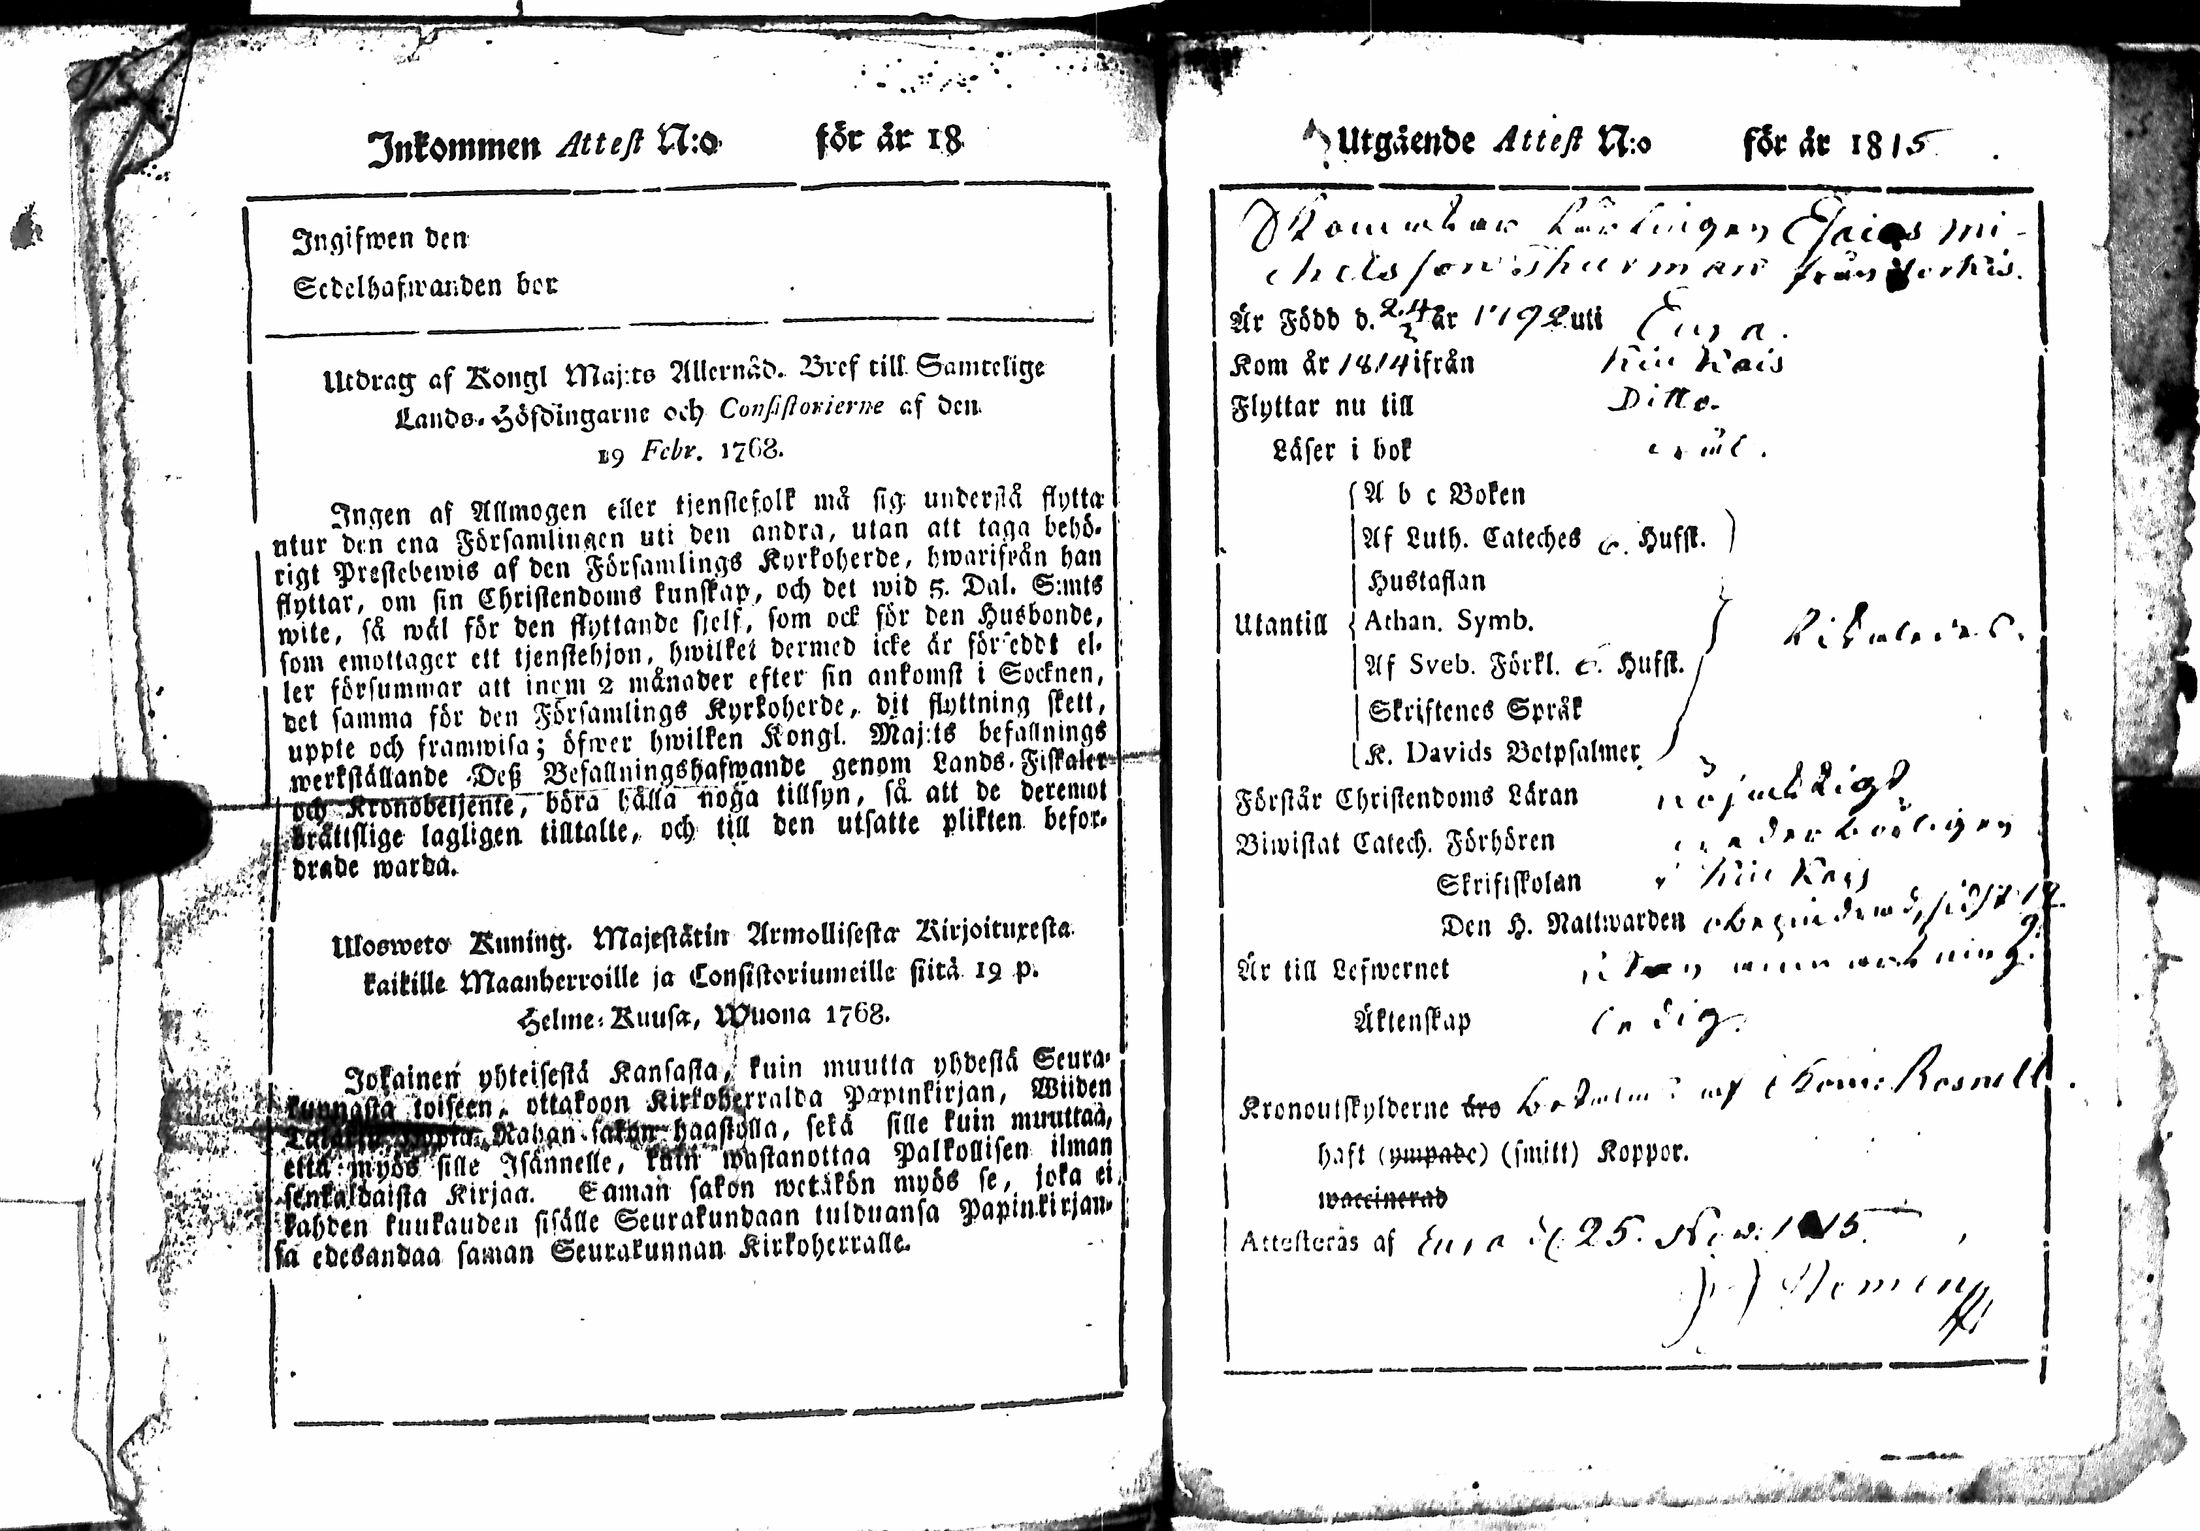 Inkommen Attest N:o för år 18
Ingifwen den
Sedelhafwanden bor
Utdrag af Kongl Maj:ts Allernåd. Bref till Samtelige
Lands-Höfdingarne och Consistorierne af den
19 Febr. 1768.
Ingen af Allmogen eller tjenstefolk må sig understå flytta
utur den ena Församlingen uti den andra, utan att taga behö-
rigt Prestebewis af den Församlings Kyrkoherde, hwarifrån han
flyttar, om sin Christendoms kunskap, och det wid 5. Dal. S:mts
wite, så wäl för den flyttande sjelf, som ock för den Husbonde,
som emottager ett tjenstehjon, hwilket dermed icke är försedt el-
ler försummar att inom 2 månader efter sin ankomst i Socknen,
det samma för den Församlings Kyrkoherde, dit flyttning skett,
uppte och framwisa; öfwer hwilken Kongl. Maj:ts befallnings
werkställande Deß Befallningshafwande genom Lands-Fiskaler
och Kronobetjente, böra hålla noga tillsyn, så att de deremot
brättslige lagligen tilltalte, och till den utsatte plikten befor-
drade warda.
Ulosweto Kuning. Majestätin Armollisesta Kirjoituxesta
kaikille Maanherroille ja Consistoriumeille siitä 19 p.
Helme-Kuusa, Wuona 1768.
Jokainen yhteisestä Kansasta, kuin muutta yhdestä Seura-
kunnasta toiseen, ottakoon Kirkoherralda Papinkirjan, Wiiden
Rahan sakon haastolla, sekä sille kuin muuttaa,
että myös sille Isännelle, kuin wastanottaa Palkollisen ilman
senkaldaista Kirjaa. Saman sakon wetäkön myös se, joka ei
kahden kuukauden sisälle Seurakundaan tulduansa Papinkirjan-
sa edesandaa saman Seurakunnan Kirkoherralle.
Utgående Attest N:o för år 1815
Lärlingen Esaias Mi-
chelsson Thurman från
Är Född d. 24/2 år 1792 uti Eura.
Kom år 1814 ifrån Kiukais
Flyttar nu till Ditto.
Läser i bok wäl.
A b c Boken
Af Luth. Cateches 6. Hufst.
Hustaflan
Utantill Athan. Symb.
Af Sveb. Förkl. 6. Hufst.
Skriftenes Språk
K. Davids Botpsalmer
Förstår Christendoms Läran nöjaktigt
Biwistat Catech. Förhören wederbörligen
Skriftskolan i Kiukais
Den H. Nattwarden obehindrad, sist
Är till Lefwernet utan anmärkning.
Äktenskap ledig.
Kronoutskylderne äro betalat af Rosnell.
haft (ympade) (smitt) Koppor.
waccinerad
Attesteras af Eura d. 25. Nov. 1815.